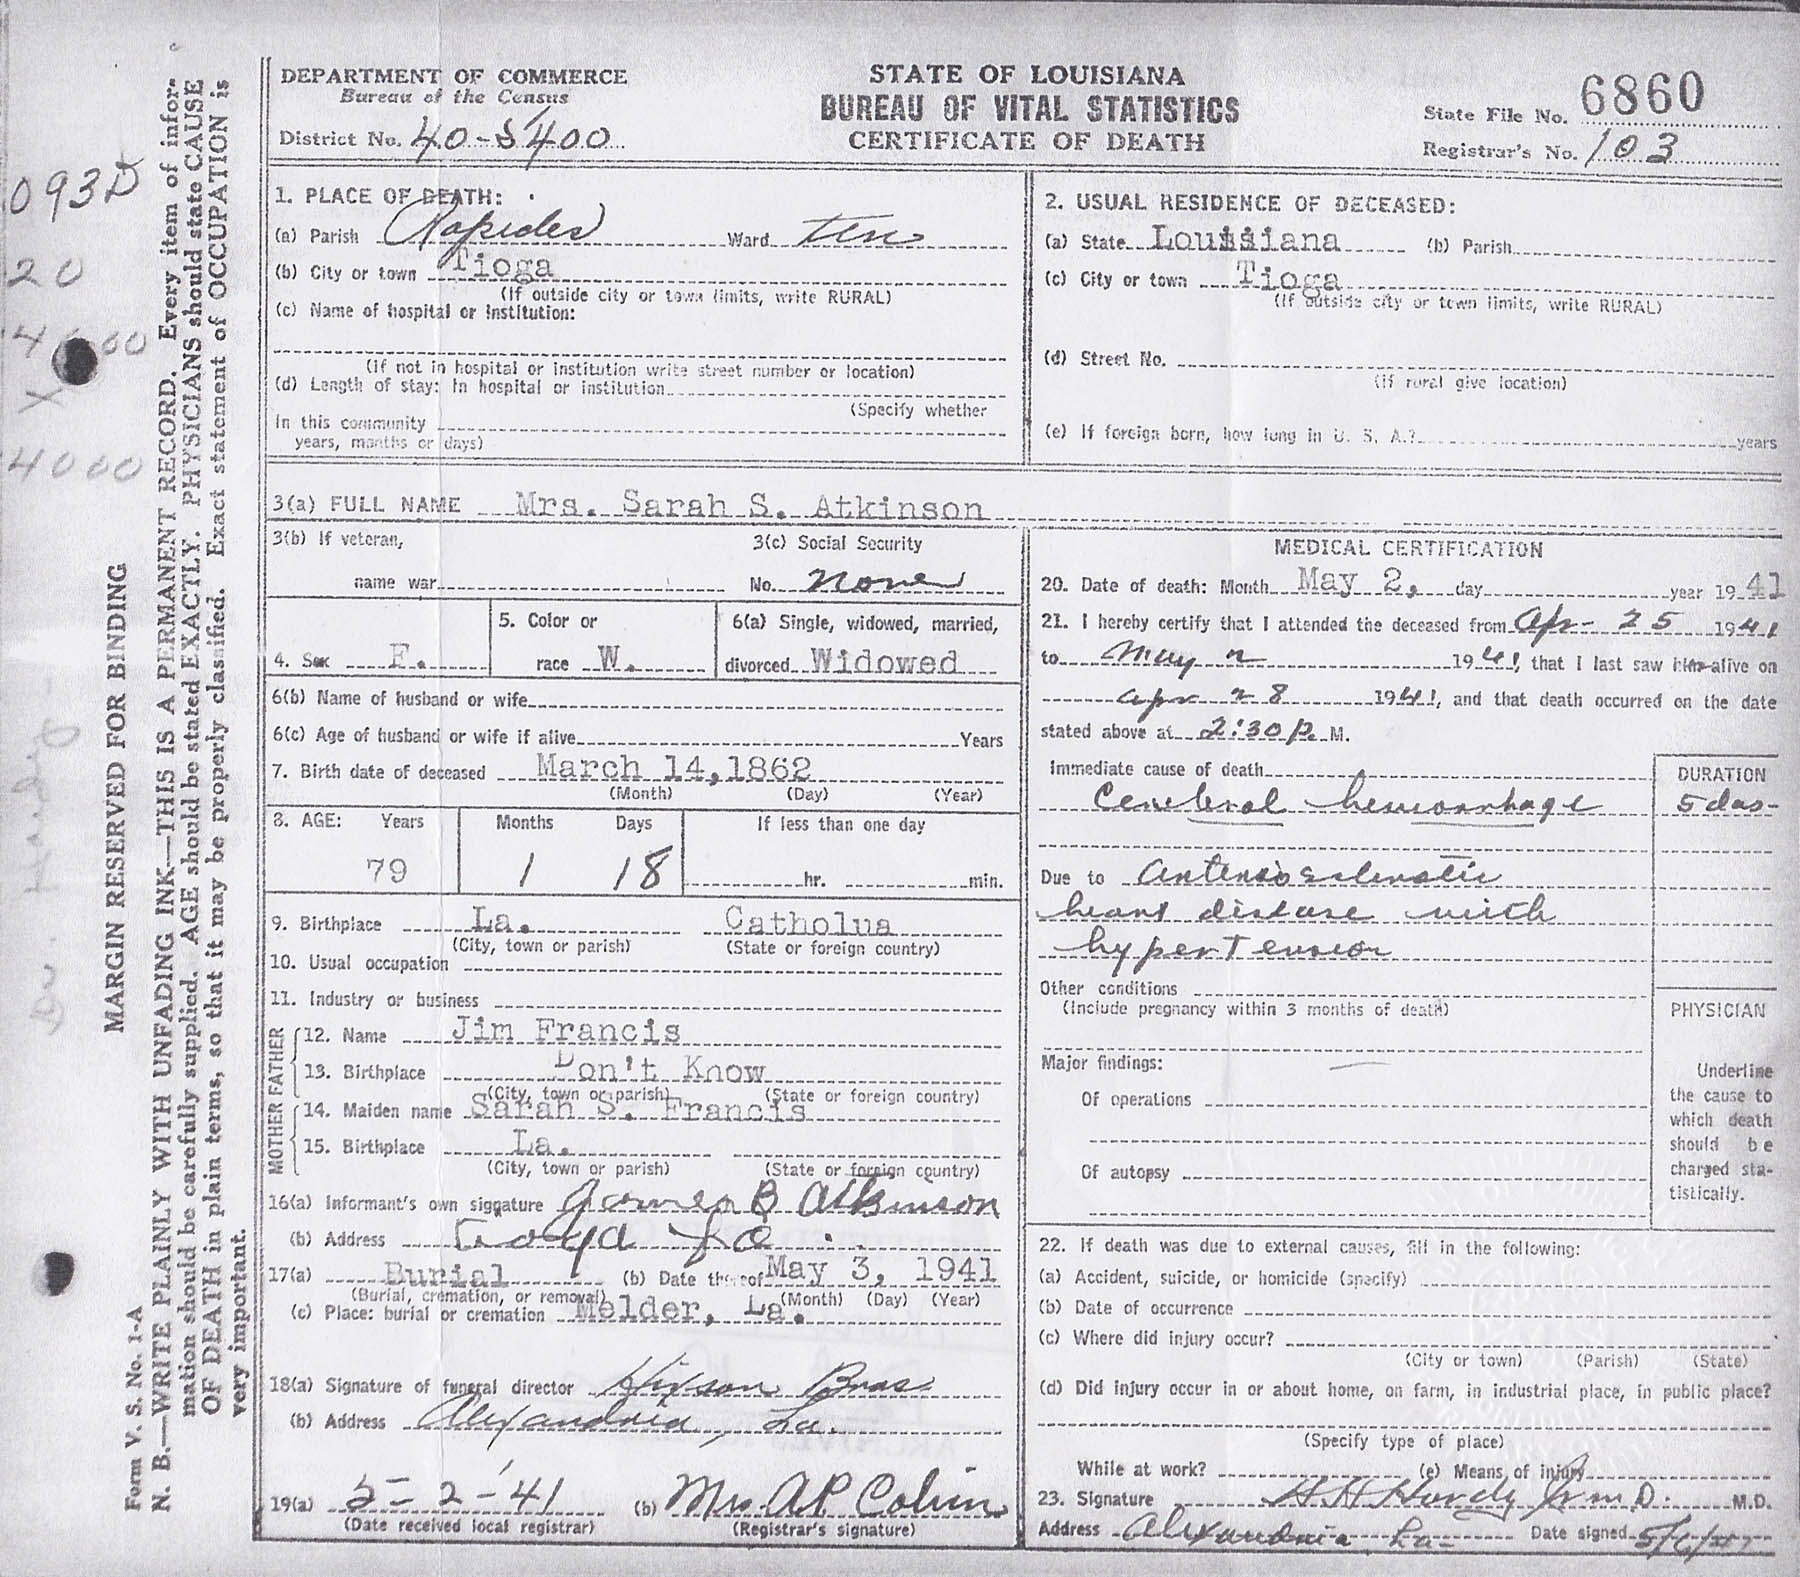 DEPARTMENT OF COMMERCE
Bureau of the Census
District No. 40-5400
STATE OF LOUISIANA
BUREAU OF VITAL STATISTICS
CERTIFICATE OF DEATH
State File No. 6860
Registrar's No. 103
093D
20
4000
X
4000
MARGIN RESERVED FOR BINDING
Form V. S. No. 1-A
N. B.—WRITE PLAINLY WITH UNFADING INK—THIS IS A PERMANENT RECORD. Every item of infor-
mation should be carefully supplied. AGE should be stated EXACTLY. PHYSICIANS should state CAUSE
OF DEATH in plain terms, so that it may be properly classified. Exact statement of OCCUPATION is
very important.
1. PLACE OF DEATH:
(a) Parish Rapides Ward ten
(b) City or town Tioga
(If outside city or town limits, write RURAL)
(c) Name of hospital or institution:
(If not in hospital or institution write street number or location)
(d) Length of stay: In hospital or institution
(Specify whether
In this community
years, months or days)
2. USUAL RESIDENCE OF DECEASED:
(a) State Louisiana (b) Parish
(c) City or town Tioga
(If outside city or town limits, write RURAL)
(d) Street No.
(If rural give location)
(e) If foreign born, how long in U. S. A.? years
3(a) FULL NAME Mrs. Sarah S. Atkinson
3(b) If veteran,
name war
3(c) Social Security
No. none
4. Sex F.
5. Color or
race W.
6(a) Single, widowed, married,
divorced Widowed
6(b) Name of husband or wife
6(c) Age of husband or wife if alive Years
7. Birth date of deceased March 14, 1862
(Month) (Day) (Year)
8. AGE: Years Months Days If less than one day
79 1 18 hr. min.
9. Birthplace La. Catholua
(City, town or parish) (State or foreign country)
10. Usual occupation
11. Industry or business
FATHER
12. Name Jim Francis
13. Birthplace Don't Know
(City, town or parish) (State or foreign country)
MOTHER
14. Maiden name Sarah S. Francis
15. Birthplace La.
(City, town or parish) (State or foreign country)
16(a) Informant's own signature James B Atkinson
(b) Address Tioga La
17(a) Burial (b) Date thereof May 3, 1941
(Burial, cremation, or removal) (Month) (Day) (Year)
(c) Place: burial or cremation Melder, La.
18(a) Signature of funeral director Hixson Bros
(b) Address Alexandria, La.
19(a) 5-2-'41 (b) Mrs. A P Colvin
(Date received local registrar) (Registrar's signature)
MEDICAL CERTIFICATION
20. Date of death: Month May 2, day year 1941
21. I hereby certify that I attended the deceased from Apr 25 1941
to May 2 1941, that I last saw him alive on
apr 28 1941, and that death occurred on the date
stated above at 2:30 P. M.
Immediate cause of death
Cerebral hemorrhage
DURATION
5 das-
Due to arteriosclerotic
heart disease with
hypertension
Other conditions
(Include pregnancy within 3 months of death)
Major findings: —
Of operations
Of autopsy
PHYSICIAN
Underline
the cause to
which death
should be
charged sta-
tistically.
22. If death was due to external causes, fill in the following:
(a) Accident, suicide, or homicide (specify)
(b) Date of occurrence
(c) Where did injury occur?
(City or town) (Parish) (State)
(d) Did injury occur in or about home, on farm, in industrial place, in public place?
(Specify type of place)
While at work? (e) Means of injury
23. Signature H H Hardy Jr M.D. M.D.
Address Alexandria La- Date signed 5/6/41